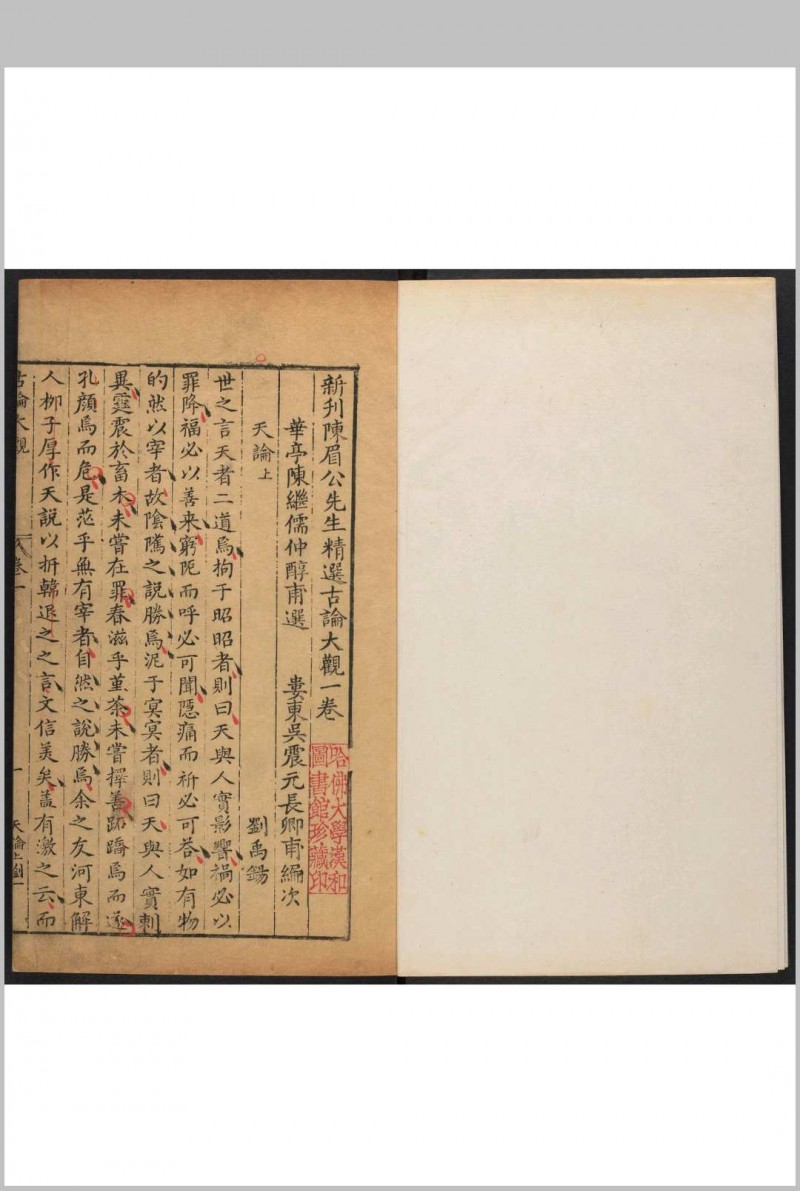 新刋陳眉公先生精選古論大觀一卷
華亭陳繼儒仲醇甫選 婁東吳震元長卿甫編次
天論上 劉禹錫
世之言天者二道焉拘于昭昭者則曰天與人實影響禍必以
罪降福必以善来窮阨而呼必可聞隱痛而祈必可答如有物
的然以宰者故陰隲之説勝焉泥于冥冥者則曰天與人實剌
異霆震於畜木未嘗在罪春滋乎堇荼未嘗擇善跖蹻焉而遂
孔顔焉而危是茫乎無有宰者自然之説勝焉余之友河東解
人栁子厚作天説以折韓退之之言文信美矣盖有激之云而
古論大觀 卷一 一 天論上劉一
哈佛大學漢和
圖書館珍藏印